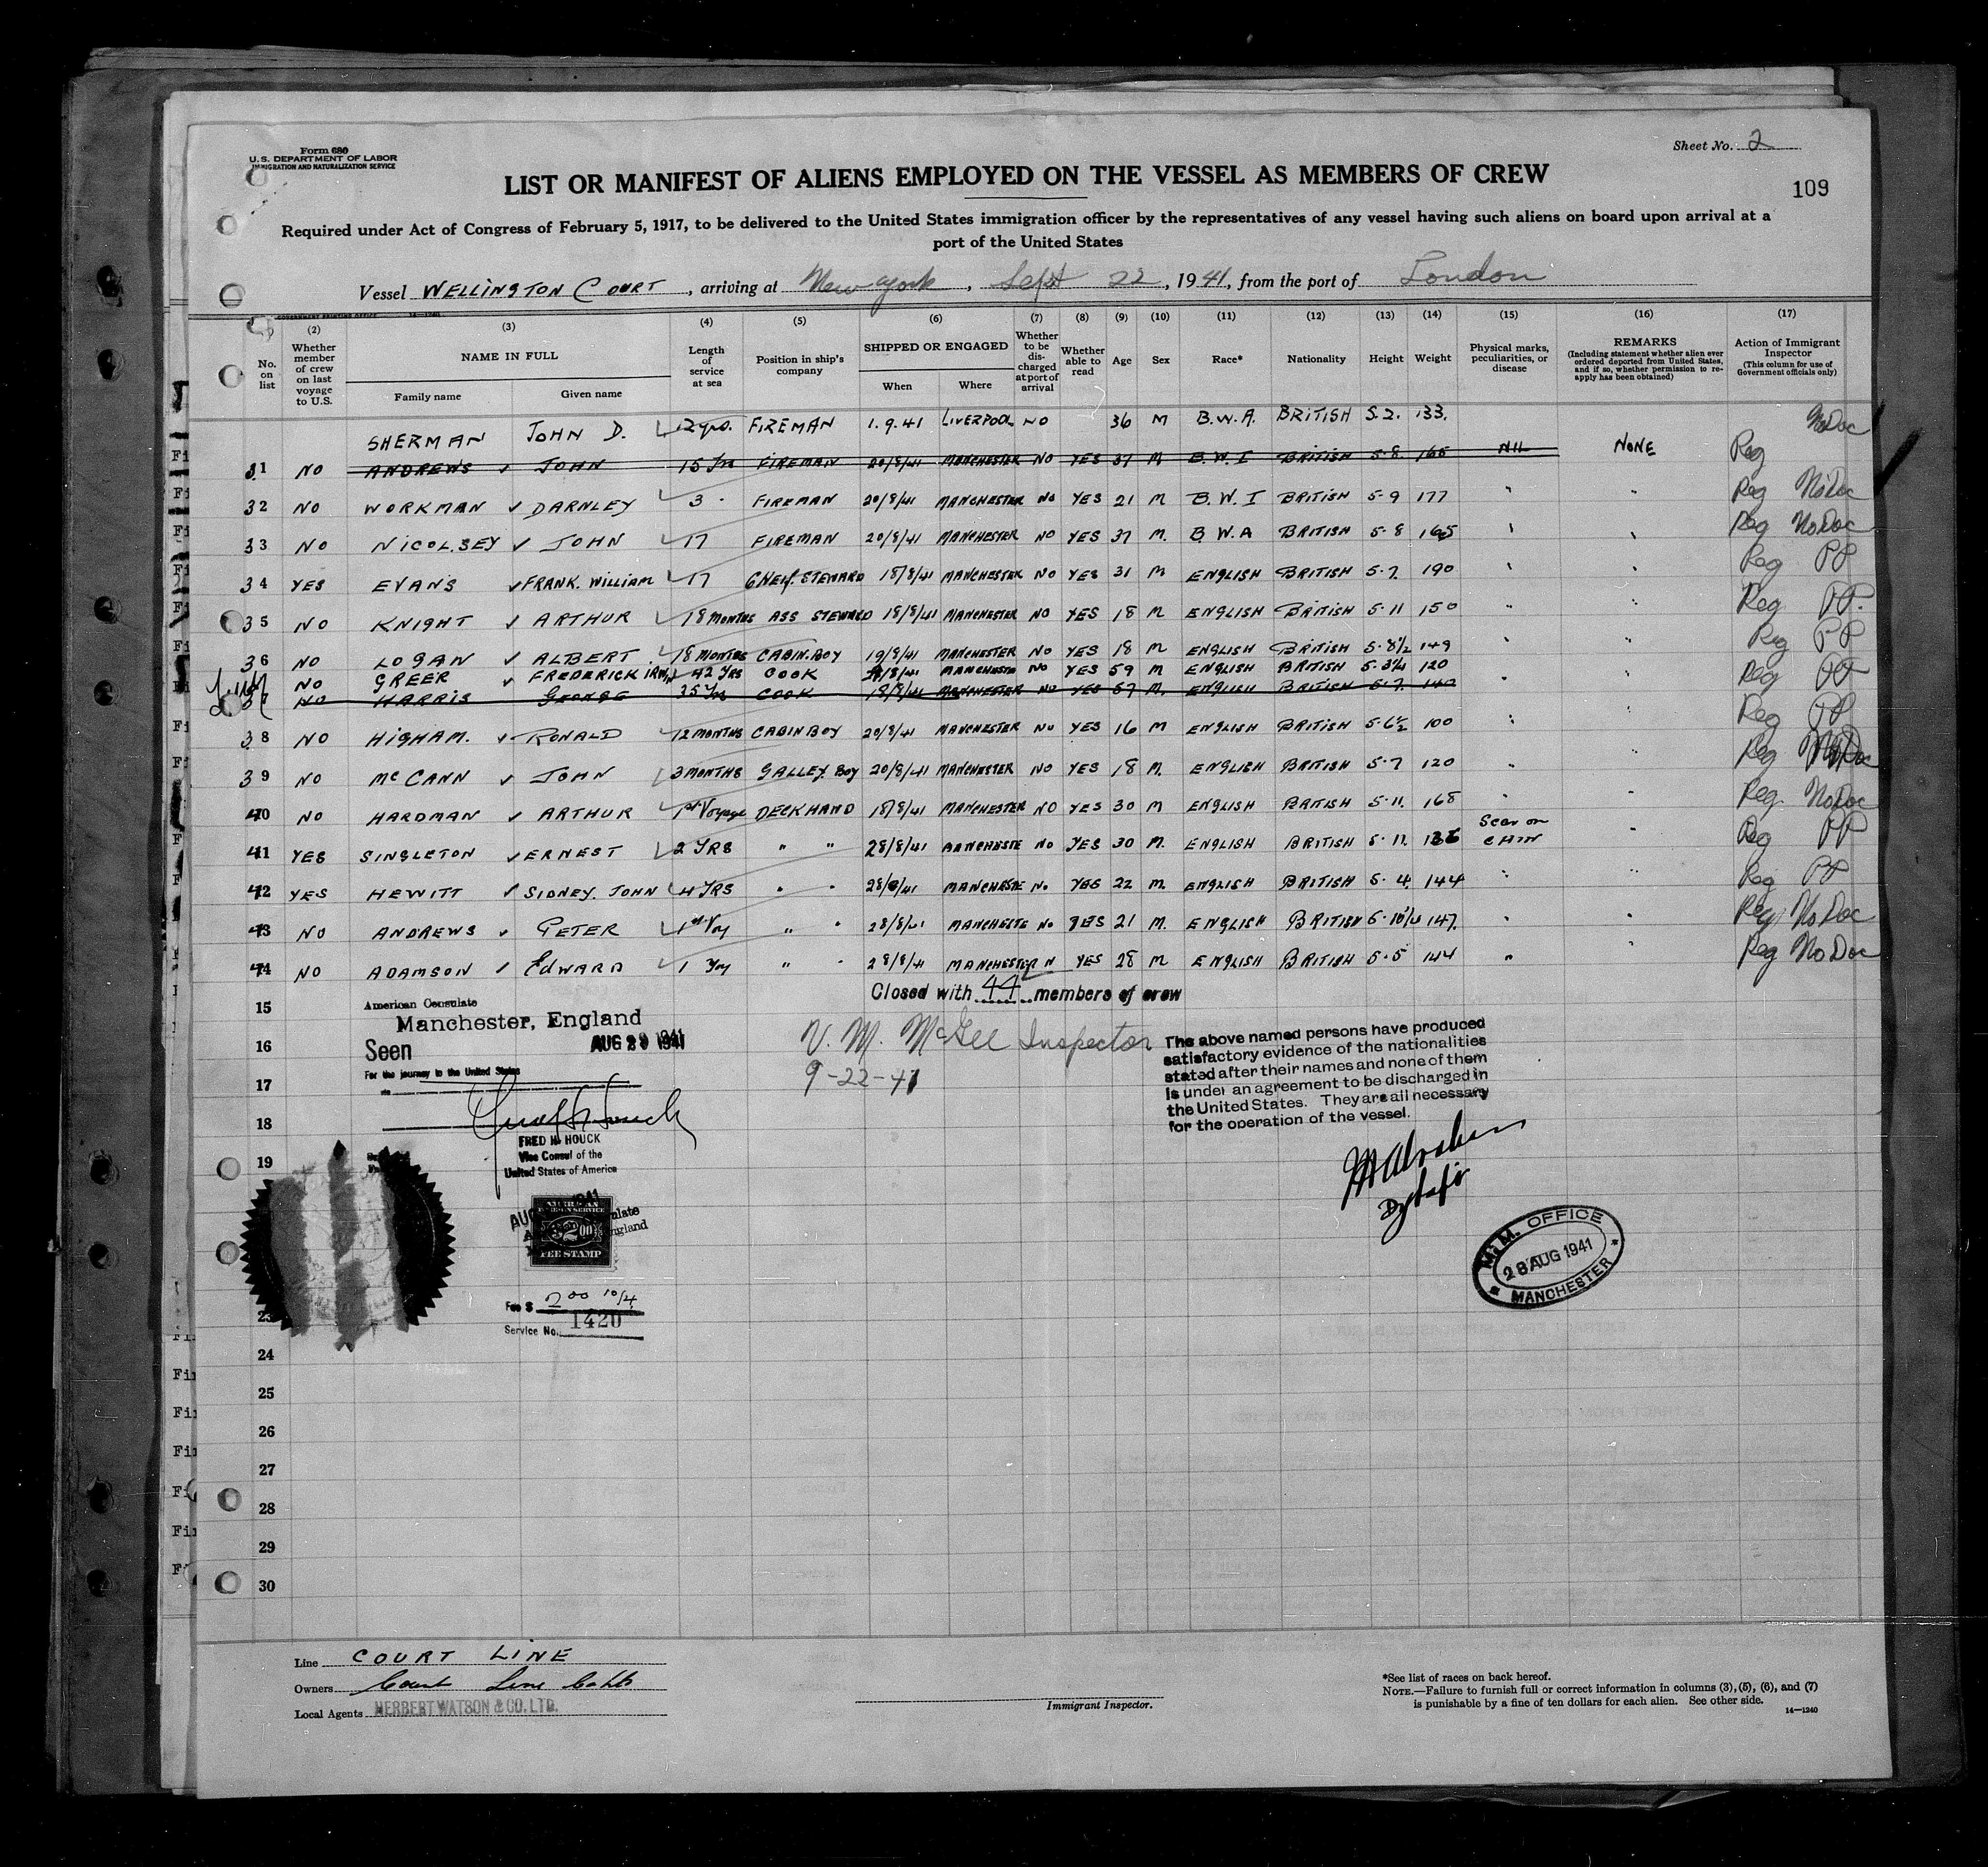 Form 680
U.S. DEPARTMENT OF LABOR
IMMIGRATION AND NATURALIZATION SERVICE
Sheet No. 2
LIST OR MANIFEST OF ALIENS EMPLOYED ON THE VESSEL AS MEMBERS OF CREW
109
Required under Act of Congress of February 5, 1917, to be delivered to the United States immigration officer by the representatives of any vessel having such aliens on board upon arrival at a
port of the United States
Vessel WELLINGTON COURT, arriving at New York, Sept 22, 1941, from the port of London
GOVERNMENT PRINTING OFFICE
(2) (3) (4) (5) (6) (7) (8) (9) (10) (11) (12) (13) (14) (15) (16) (17)
No. on list
Whether member of crew on last voyage to U.S.
NAME IN FULL
Family name
Given name
Length of service at sea
Position in ship's company
SHIPPED OR ENGAGED
When
Where
Whether to be discharged at port of arrival
Whether able to read
Age
Sex
Race*
Nationality
Height
Weight
Physical marks, peculiarities, or disease
REMARKS
(Including statement whether alien ever ordered deported from United States, and if so, whether permission to reapply has been obtained)
Action of Immigrant Inspector
(This column for use of Government officials only)
SHERMAN JOHN D. 12 yrs. FIREMAN 1.9.41 LIVERPOOL NO 36 M B.W.A. BRITISH 5.2. 133. No Doc
31 NO ANDREWS ✓ JOHN 15 Yrs FIREMAN 20/8/41 MANCHESTER NO YES 37 M B.W.I BRITISH 5·8 165 NIL NONE Reg
32 NO WORKMAN ✓ DARNLEY 3 · FIREMAN 20/8/41 MANCHESTER NO YES 21 M B.W.I BRITISH 5·9 177 " " Reg No Doc
33 NO NICOLSEY ✓ JOHN 17 FIREMAN 20/8/41 MANCHESTER NO YES 37 M. B.W.A BRITISH 5·8 165 Reg No Doc
34 YES EVANS ✓ FRANK. WILLIAM 17 CHEIF. STEWARD 18/8/41 MANCHESTER NO YES 31 M ENGLISH BRITISH 5·7. 190 Reg PP
35 NO KNIGHT ✓ ARTHUR 18 MONTHS ASS STEWARD 18/8/41 MANCHESTER NO YES 18 M ENGLISH BRITISH 5·11 150 " " Reg PP.
36 NO LOGAN ✓ ALBERT. 18 MONTHS CABIN.BOY 19/8/41 MANCHESTER NO YES 18 M ENGLISH BRITISH 5·8½ 149 " " Reg PP
NO GREER ✓ FREDERICK IRWIN 42 YRS COOK MANCHESTE NO YES 59 M ENGLISH BRITISH 5·3¾ 120 " " Reg PP
37 NO HARRIS GEORGE 35 Yrs COOK 18/8/41 MANCHESTER NO YES 57 M. ENGLISH BRITISH 5·7. 140
38 NO HIGHAM. ✓ RONALD 12 MONTHS CABIN BOY 20/8/41 MANCHESTER NO YES 16 M ENGLISH BRITISH 5·6½ 100 Reg PP
39 NO McCANN ✓ JOHN 3 MONTHS GALLEY BOY 20/8/41 MANCHESTER NO YES 18 M. ENGLISH BRITISH 5·7 120 " " Reg No Doc
40 NO HARDMAN ✓ ARTHUR 1st Voyage DECKHAND 18/8/41 MANCHESTER NO YES 30 M ENGLISH BRITISH 5·11. 168 " " Reg. No Doc
41 YES SINGLETON ✓ ERNEST 2 YRS " " 28/8/41 MANCHESTE NO YES 30 M. ENGLISH BRITISH 5·11. 136 Scar on CHIN " Reg PP
42 YES HEWITT ✓ SIDNEY. JOHN 4 YRS " " 28/8/41 MANCHESTE No YES 22 M. ENGLISH BRITISH 5·4. 144 " " Reg PP
43 NO ANDREWS ✓ PETER 1st Voy " " 28/8/41 MANCHESTE NO YES 21 M. ENGLISH BRITISH 5·10¼ 147. " " Reg No Doc
44 NO ADAMSON ✓ EDWARD 1 Voy " " 28/8/41 MANCHESTER N YES 28 M ENGLISH BRITISH 5·5 144 " " Reg No Doc
Closed with 44 members of crew
15
American Consulate
Manchester, England
16
Seen AUG 29 1941
For the journey to the United States
V. M. McGee Inspector
9-22-41
The above named persons have produced
satisfactory evidence of the nationalities
stated after their names and none of them
is under an agreement to be discharged in
the United States. They are all necessary
for the operation of the vessel.
17
18
FRED H. HOUCK
Vice Consul of the
United States of America
19
AMERICAN
FOREIGN SERVICE
$2.00
FEE STAMP
M.M. OFFICE
28 AUG 1941
MANCHESTER
Fee $ 2 00 10/4
Service No. 1420
23
24
25
26
27
28
29
30
Line COURT LINE
Owners Court Line
Local Agents HERBERT WATSON & CO. LTD.
Immigrant Inspector.
*See list of races on back hereof.
NOTE.—Failure to furnish full or correct information in columns (3), (5), (6), and (7)
is punishable by a fine of ten dollars for each alien. See other side.
14—1240